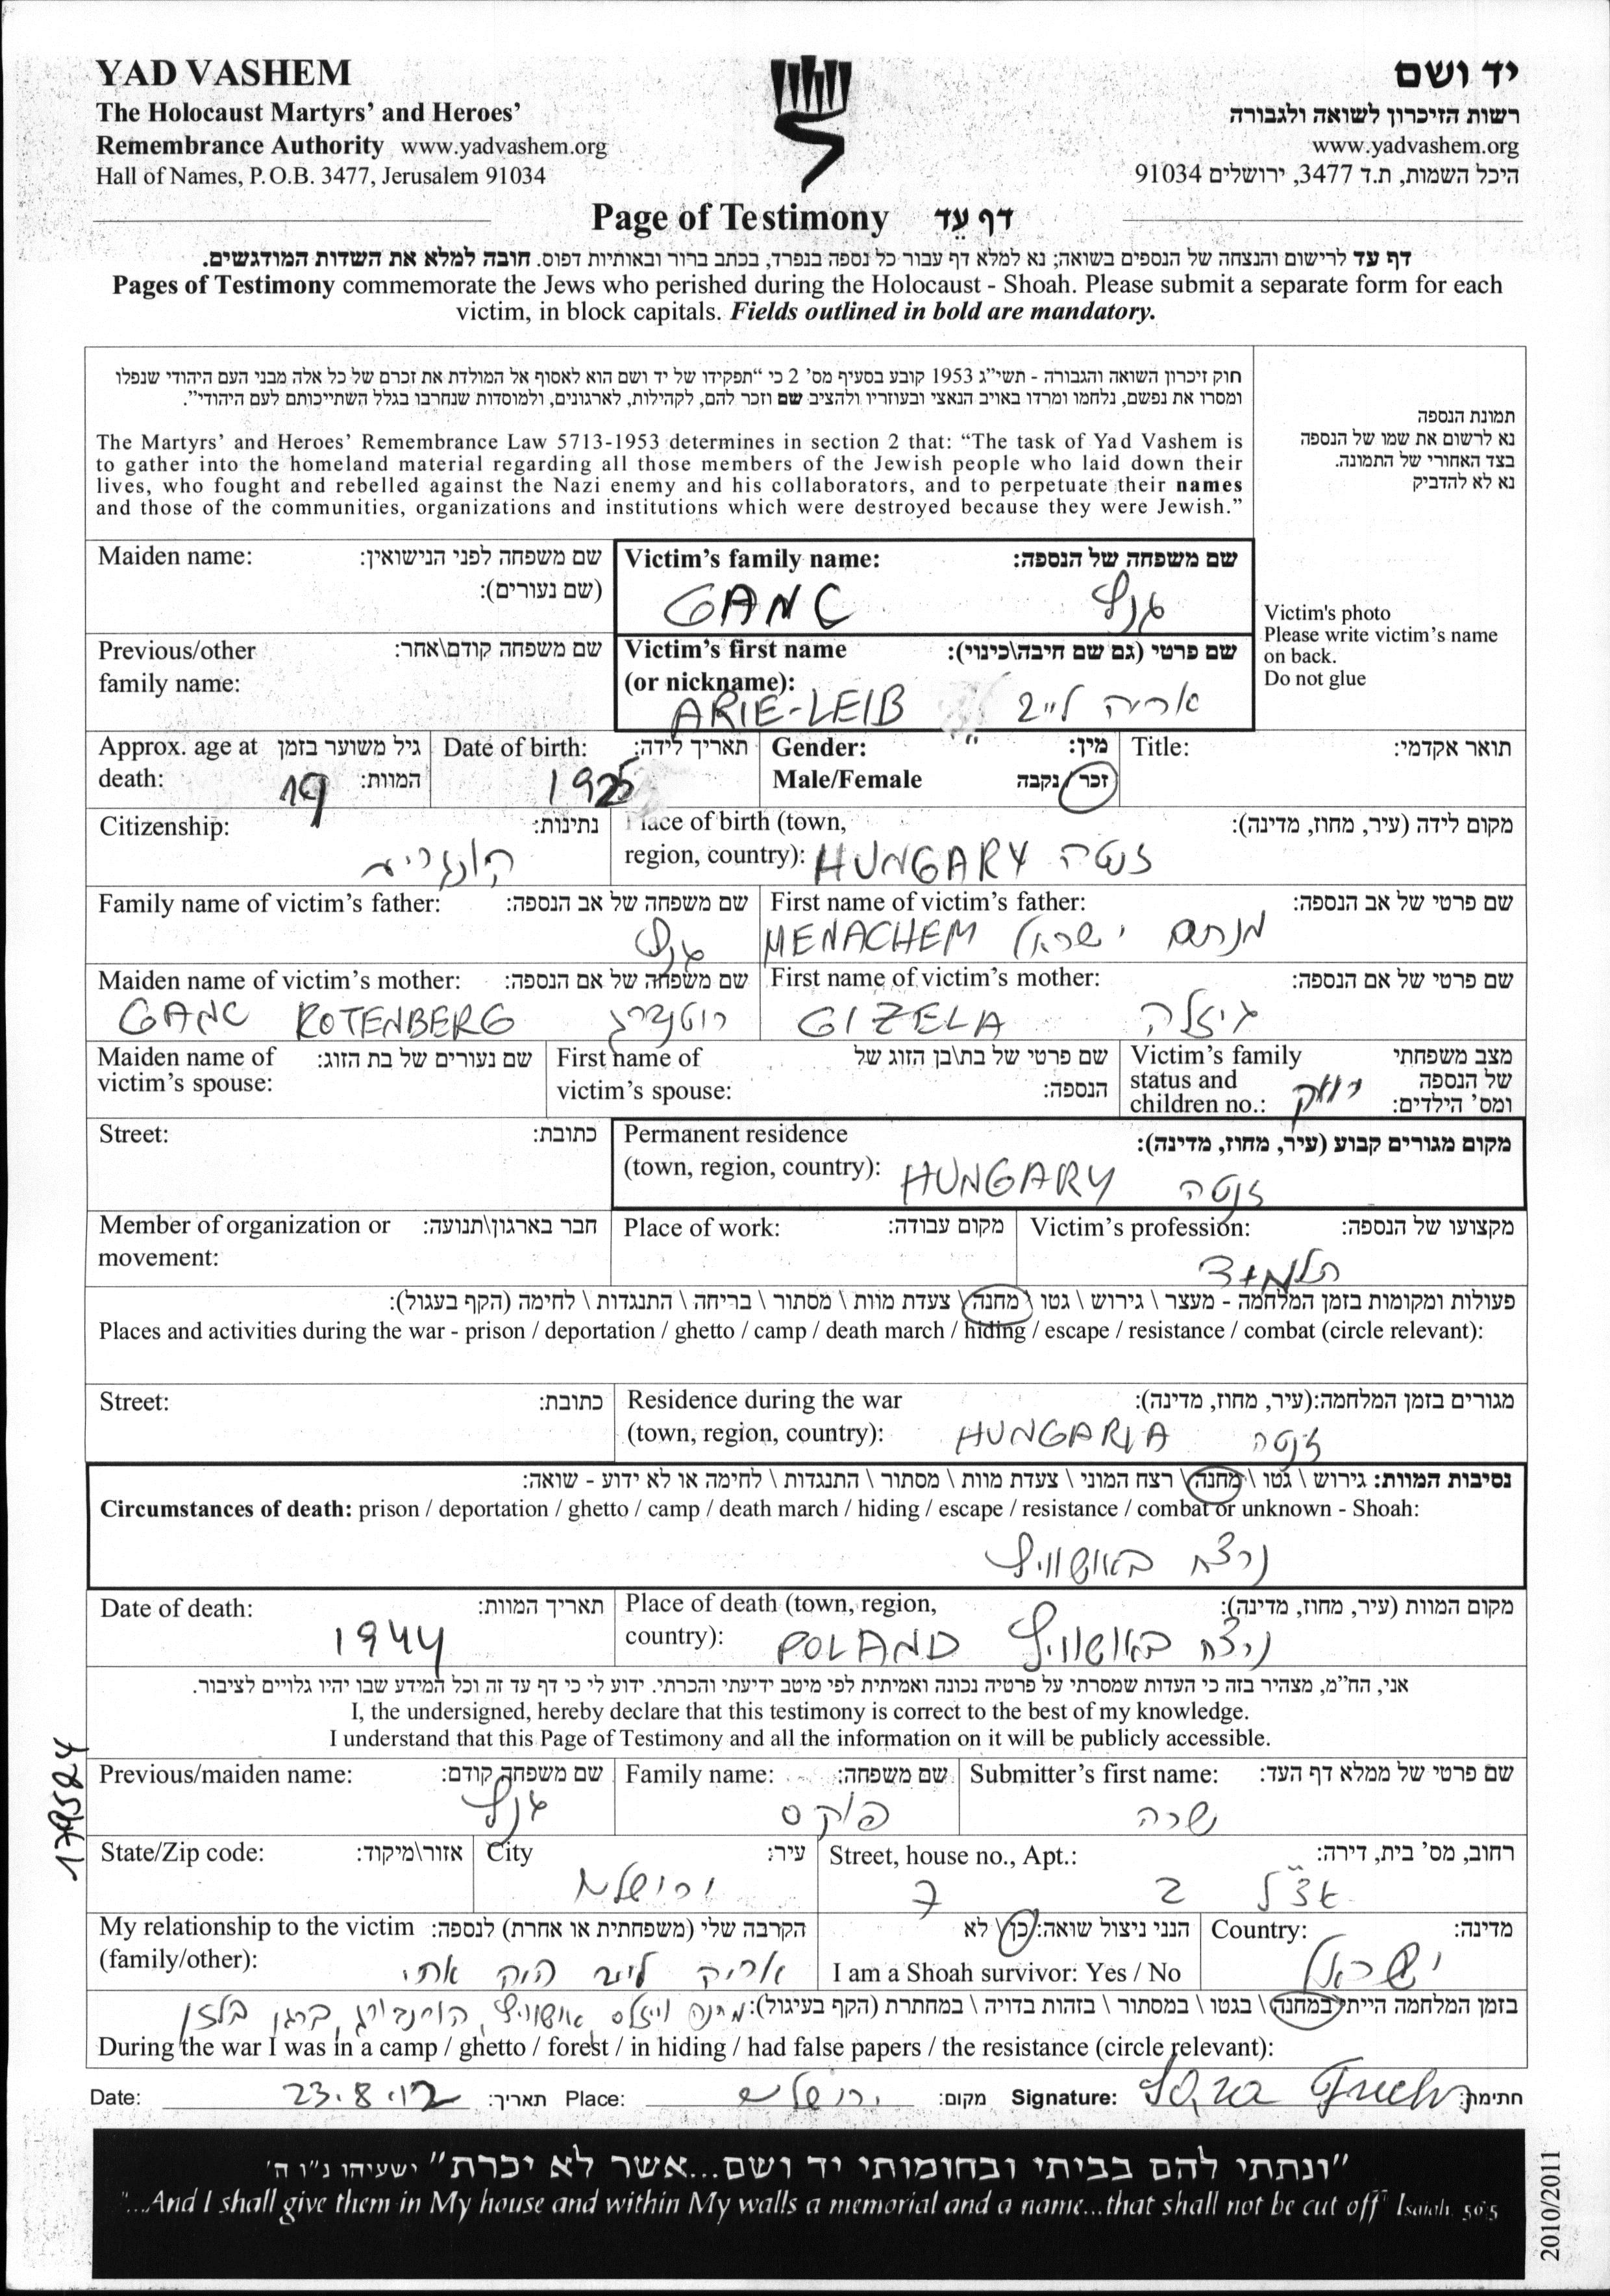 YAD VASHEM
יד ושם
The Holocaust Martyrs' and Heroes'
רשות הזיכרון לשואה ולגבורה
Remembrance Authority www.yadvashem.org
www.yadvashem.org
Hall of Names, P.O.B. 3477, Jerusalem 91034
היכל השמות, ת.ד 3477, ירושלים 91034
Page of Testimony דף עֵד
דף עד לרישום והנצחה של הנספים בשואה; נא למלא דף עבור כל נספה בנפרד, בכתב ברור ובאותיות דפוס. חובה למלא את השדות המודגשים.
Pages of Testimony commemorate the Jews who perished during the Holocaust - Shoah. Please submit a separate form for each
victim, in block capitals. Fields outlined in bold are mandatory.
חוק זיכרון השואה והגבורה - תשי"ג 1953 קובע בסעיף מס' 2 כי "תפקידו של יד ושם הוא לאסוף אל המולדת את זכרם של כל אלה מבני העם היהודי שנפלו
ומסרו את נפשם, נלחמו ומרדו באויב הנאצי ובעוזריו ולהציב שם וזכר להם, לקהילות, לארגונים, ולמוסדות שנחרבו בגלל השתייכותם לעם היהודי".
The Martyrs' and Heroes' Remembrance Law 5713-1953 determines in section 2 that: "The task of Yad Vashem is
to gather into the homeland material regarding all those members of the Jewish people who laid down their
lives, who fought and rebelled against the Nazi enemy and his collaborators, and to perpetuate their names
and those of the communities, organizations and institutions which were destroyed because they were Jewish."
תמונת הנספה
נא לרשום את שמו של הנספה
בצד האחורי של התמונה.
נא לא להדביק
Victim's photo
Please write victim's name
on back.
Do not glue
Maiden name: שם משפחה לפני הנישואין:
(שם נעורים):
Victim's family name: שם משפחה של הנספה:
GANC גנץ
Previous/other שם משפחה קודם\אחר:
family name:
Victim's first name שם פרטי (גם שם חיבה\כינוי):
(or nickname):
ARIE-LEIB אריה לייב
Approx. age at גיל משוער בזמן
death: 19 המוות:
Date of birth: תאריך לידה:
1925
Gender: מין:
Male/Female זכר / נקבה
Title: תואר אקדמי:
Citizenship: נתינות:
הונגריה
Place of birth (town, מקום לידה (עיר, מחוז, מדינה):
region, country): HUNGARY זנטה
Family name of victim's father: שם משפחה של אב הנספה:
גנץ
First name of victim's father: שם פרטי של אב הנספה:
MENACHEM מנחם ישראל
Maiden name of victim's mother: שם משפחה של אם הנספה:
GANC ROTENBERG רוטנברג
First name of victim's mother: שם פרטי של אם הנספה:
GIZELA גיזלה
Maiden name of שם נעורים של בת הזוג:
victim's spouse:
First name of שם פרטי של בת\בן הזוג של
victim's spouse: הנספה:
Victim's family מצב משפחתי
status and של הנספה
children no.: רווק ומס' הילדים:
Street: כתובת:
Permanent residence מקום מגורים קבוע (עיר, מחוז, מדינה):
(town, region, country): HUNGARY זנטה
Member of organization or חבר בארגון\תנועה:
movement:
Place of work: מקום עבודה:
Victim's profession: מקצועו של הנספה:
תלמיד
פעולות ומקומות בזמן המלחמה - מעצר \ גירוש \ גטו \ מחנה \ צעדת מוות \ מסתור \ בריחה \ התנגדות \ לחימה (הקף בעגול):
Places and activities during the war - prison / deportation / ghetto / camp / death march / hiding / escape / resistance / combat (circle relevant):
Street: כתובת:
Residence during the war מגורים בזמן המלחמה:(עיר, מחוז, מדינה):
(town, region, country): HUNGARIA זנטה
נסיבות המוות: גירוש \ גטו \ מחנה \ רצח המוני \ צעדת מוות \ מסתור \ התנגדות \ לחימה או לא ידוע - שואה:
Circumstances of death: prison / deportation / ghetto / camp / death march / hiding / escape / resistance / combat or unknown - Shoah:
נרצח באושוויץ
Date of death: תאריך המוות:
1944
Place of death (town, region, מקום המוות (עיר, מחוז, מדינה):
country): POLAND נרצח באושוויץ
אני, הח"מ, מצהיר בזה כי העדות שמסרתי על פרטיה נכונה ואמיתית לפי מיטב ידיעתי והכרתי. ידוע לי כי דף עד זה וכל המידע שבו יהיו גלויים לציבור.
I, the undersigned, hereby declare that this testimony is correct to the best of my knowledge.
I understand that this Page of Testimony and all the information on it will be publicly accessible.
179584
Previous/maiden name: שם משפחה קודם:
גנץ
Family name: שם משפחה:
פוקס
Submitter's first name: שם פרטי של ממלא דף העד:
שרה
State/Zip code: אזור\מיקוד:
City עיר:
ירושלים
Street, house no., Apt.: רחוב, מס' בית, דירה:
אצ"ל 2 7
My relationship to the victim הקרבה שלי (משפחתית או אחרת) לנספה:
(family/other): אריה לייב היה אחי
הנני ניצול שואה: כן \ לא
I am a Shoah survivor: Yes / No
Country: מדינה:
ישראל
בזמן המלחמה הייתי במחנה \ בגטו \ במסתור \ בזהות בדויה \ במחתרת (הקף בעיגול): מחנה אושוויץ, ברגן בלזן
During the war I was in a camp / ghetto / forest / in hiding / had false papers / the resistance (circle relevant):
Date: 23.8.12 תאריך: Place: ירושלים מקום: Signature: Sara Fuchs חתימה:
"ונתתי להם בביתי ובחומותי יד ושם...אשר לא יכרת" ישעיהו נ"ו ה'
"...And I shall give them in My house and within My walls a memorial and a name...that shall not be cut off" Isaiah 56:5
2010/2011